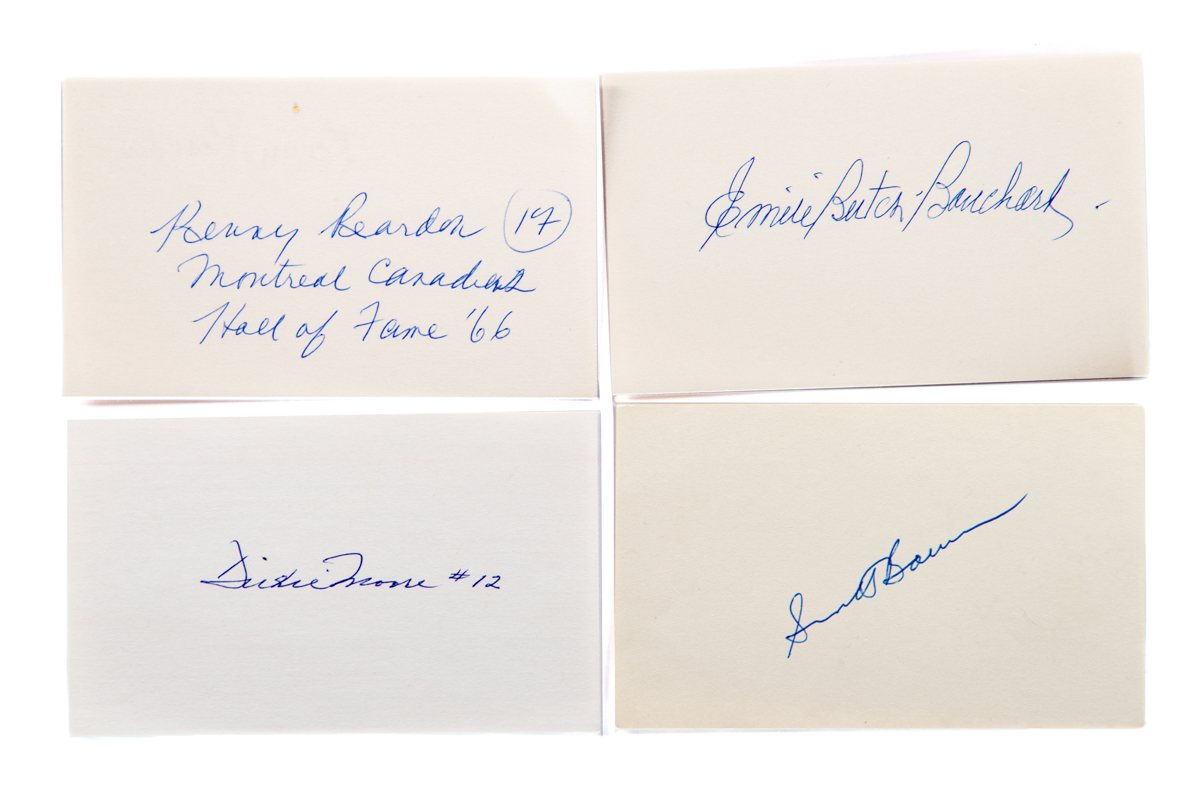 Kenny Reardon 17
Montreal Canadiens
Hall of Fame '66
Emile Butch Bouchard
Dickie Moore #12
Bower